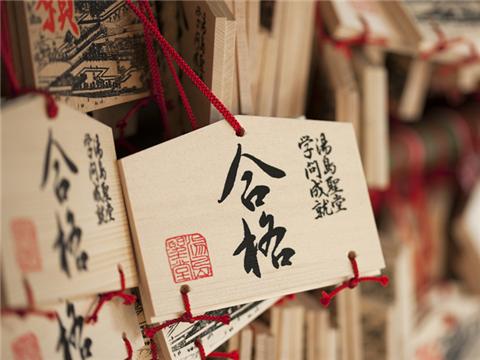 湯島聖堂
学問成就
合格
湯島聖堂
湯島聖堂
学問成就
合格
合格